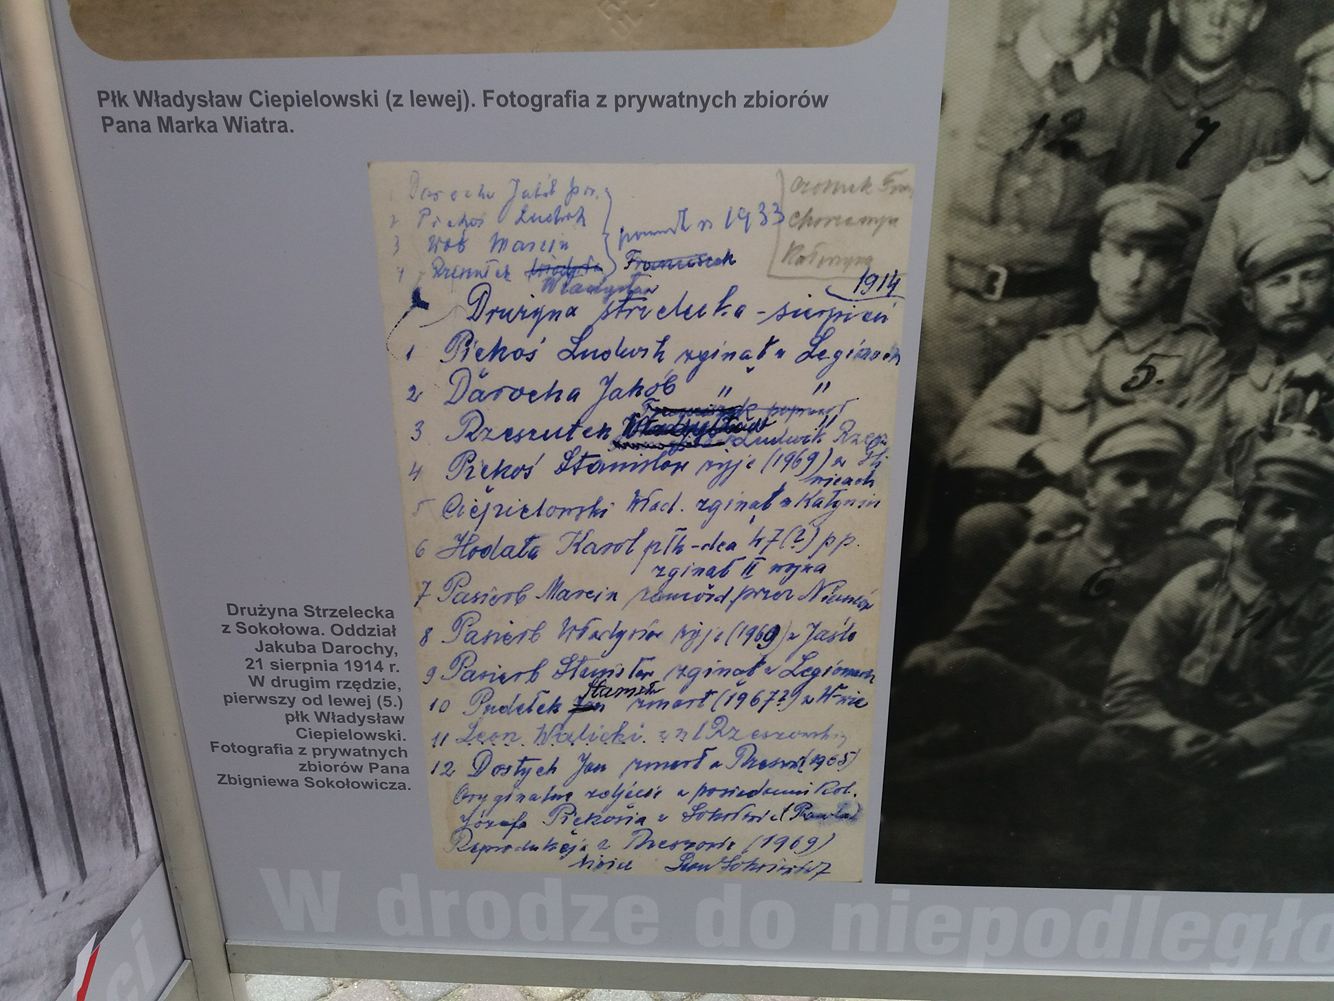 Płk Władysław Ciepielowski (z lewej). Fotografia z prywatnych zbiorów
Pana Marka Wiatra.
Darocha Jakób por.
2 Piekoś Ludwik
3 Wób Marcin
4 Rzeszutek
Władysław
Franciszek
1933
1914
Drużyna strzelecka - sierpień
1 Piekoś Ludwik zginął w Legionach
2 Darocha Jakób " "
3 Rzeszutek Władysław "
4 Piekoś Stanisław żyje (1969) w
5 Ciepielowski Wład. zginął w Katyniu
6 Hodała Karol płk-dca 47(?) pp.
zginął II wojna
7 Pasierb Marcin przez Niemców
8 Pasierb Władysław żyje (1969) w Jaśle
9 Pasierb Stanisław zginął w Legionach
10 Pudełek Jan Stanisław zmarł (1967?) w
11 Leon Walicki
12 Dostych Jan zmarł w (1968)
Oryginalne zdjęcie w posiadaniu Kol.
Józefa Piekosia w
Reprodukcja z Rzeszowa (1969)
Drużyna Strzelecka
z Sokołowa. Oddział
Jakuba Darochy,
21 sierpnia 1914 r.
W drugim rzędzie,
pierwszy od lewej (5.)
płk Władysław
Ciepielowski.
Fotografia z prywatnych
zbiorów Pana
Zbigniewa Sokołowicza.
12
7
5.
6
W drodze do niepodległo
ci